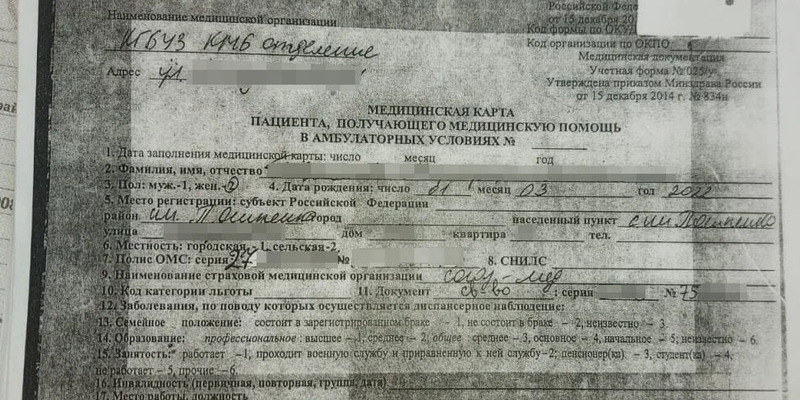 Наименование медицинской организации
Российской Феде
от 15 декабря 20
Код формы по ОКУД
КГБУЗ КМБ отделение
Код организации по ОКПО
Медицинская документация
Адрес ул
Учетная форма № 025/у
Утверждена приказом Минздрава России
от 15 декабря 2014 г. № 834н
МЕДИЦИНСКАЯ КАРТА
ПАЦИЕНТА, ПОЛУЧАЮЩЕГО МЕДИЦИНСКУЮ ПОМОЩЬ
В АМБУЛАТОРНЫХ УСЛОВИЯХ №
1. Дата заполнения медицинской карты: число месяц год
2. Фамилия, имя, отчество
3. Пол: муж.-1, жен.-2 4. Дата рождения: число 01 месяц 03 год 2022
5. Место регистрации: субъект Российской Федерации
район им. П. Осипенко город населенный пункт с им П Осипенко
улица дом квартира тел.
6. Местность: городская - 1, сельская-2
7. Полис ОМС: серия 27 № 8. СНИЛС
9. Наименование страховой медицинской организации согаз-мед
10. Код категории льготы 11. Документ св-во : серия № 75
12. Заболевания, по поводу которых осуществляется диспансерное наблюдение:
13. Семейное положение: состоит в зарегистрированном браке - 1, не состоит в браке - 2; неизвестно - 3.
14. Образование: профессиональное: высшее - 1, среднее - 2; общее: среднее - 3, основное - 4, начальное - 5; неизвестно - 6.
15. Занятость: работает -1, проходит военную службу и приравненную к ней службу-2; пенсионер(ка) - 3, студент(ка) - 4,
не работает - 5, прочие - 6.
16. Инвалидность (первичная, повторная, группа, дата)
17. Место работы, должность